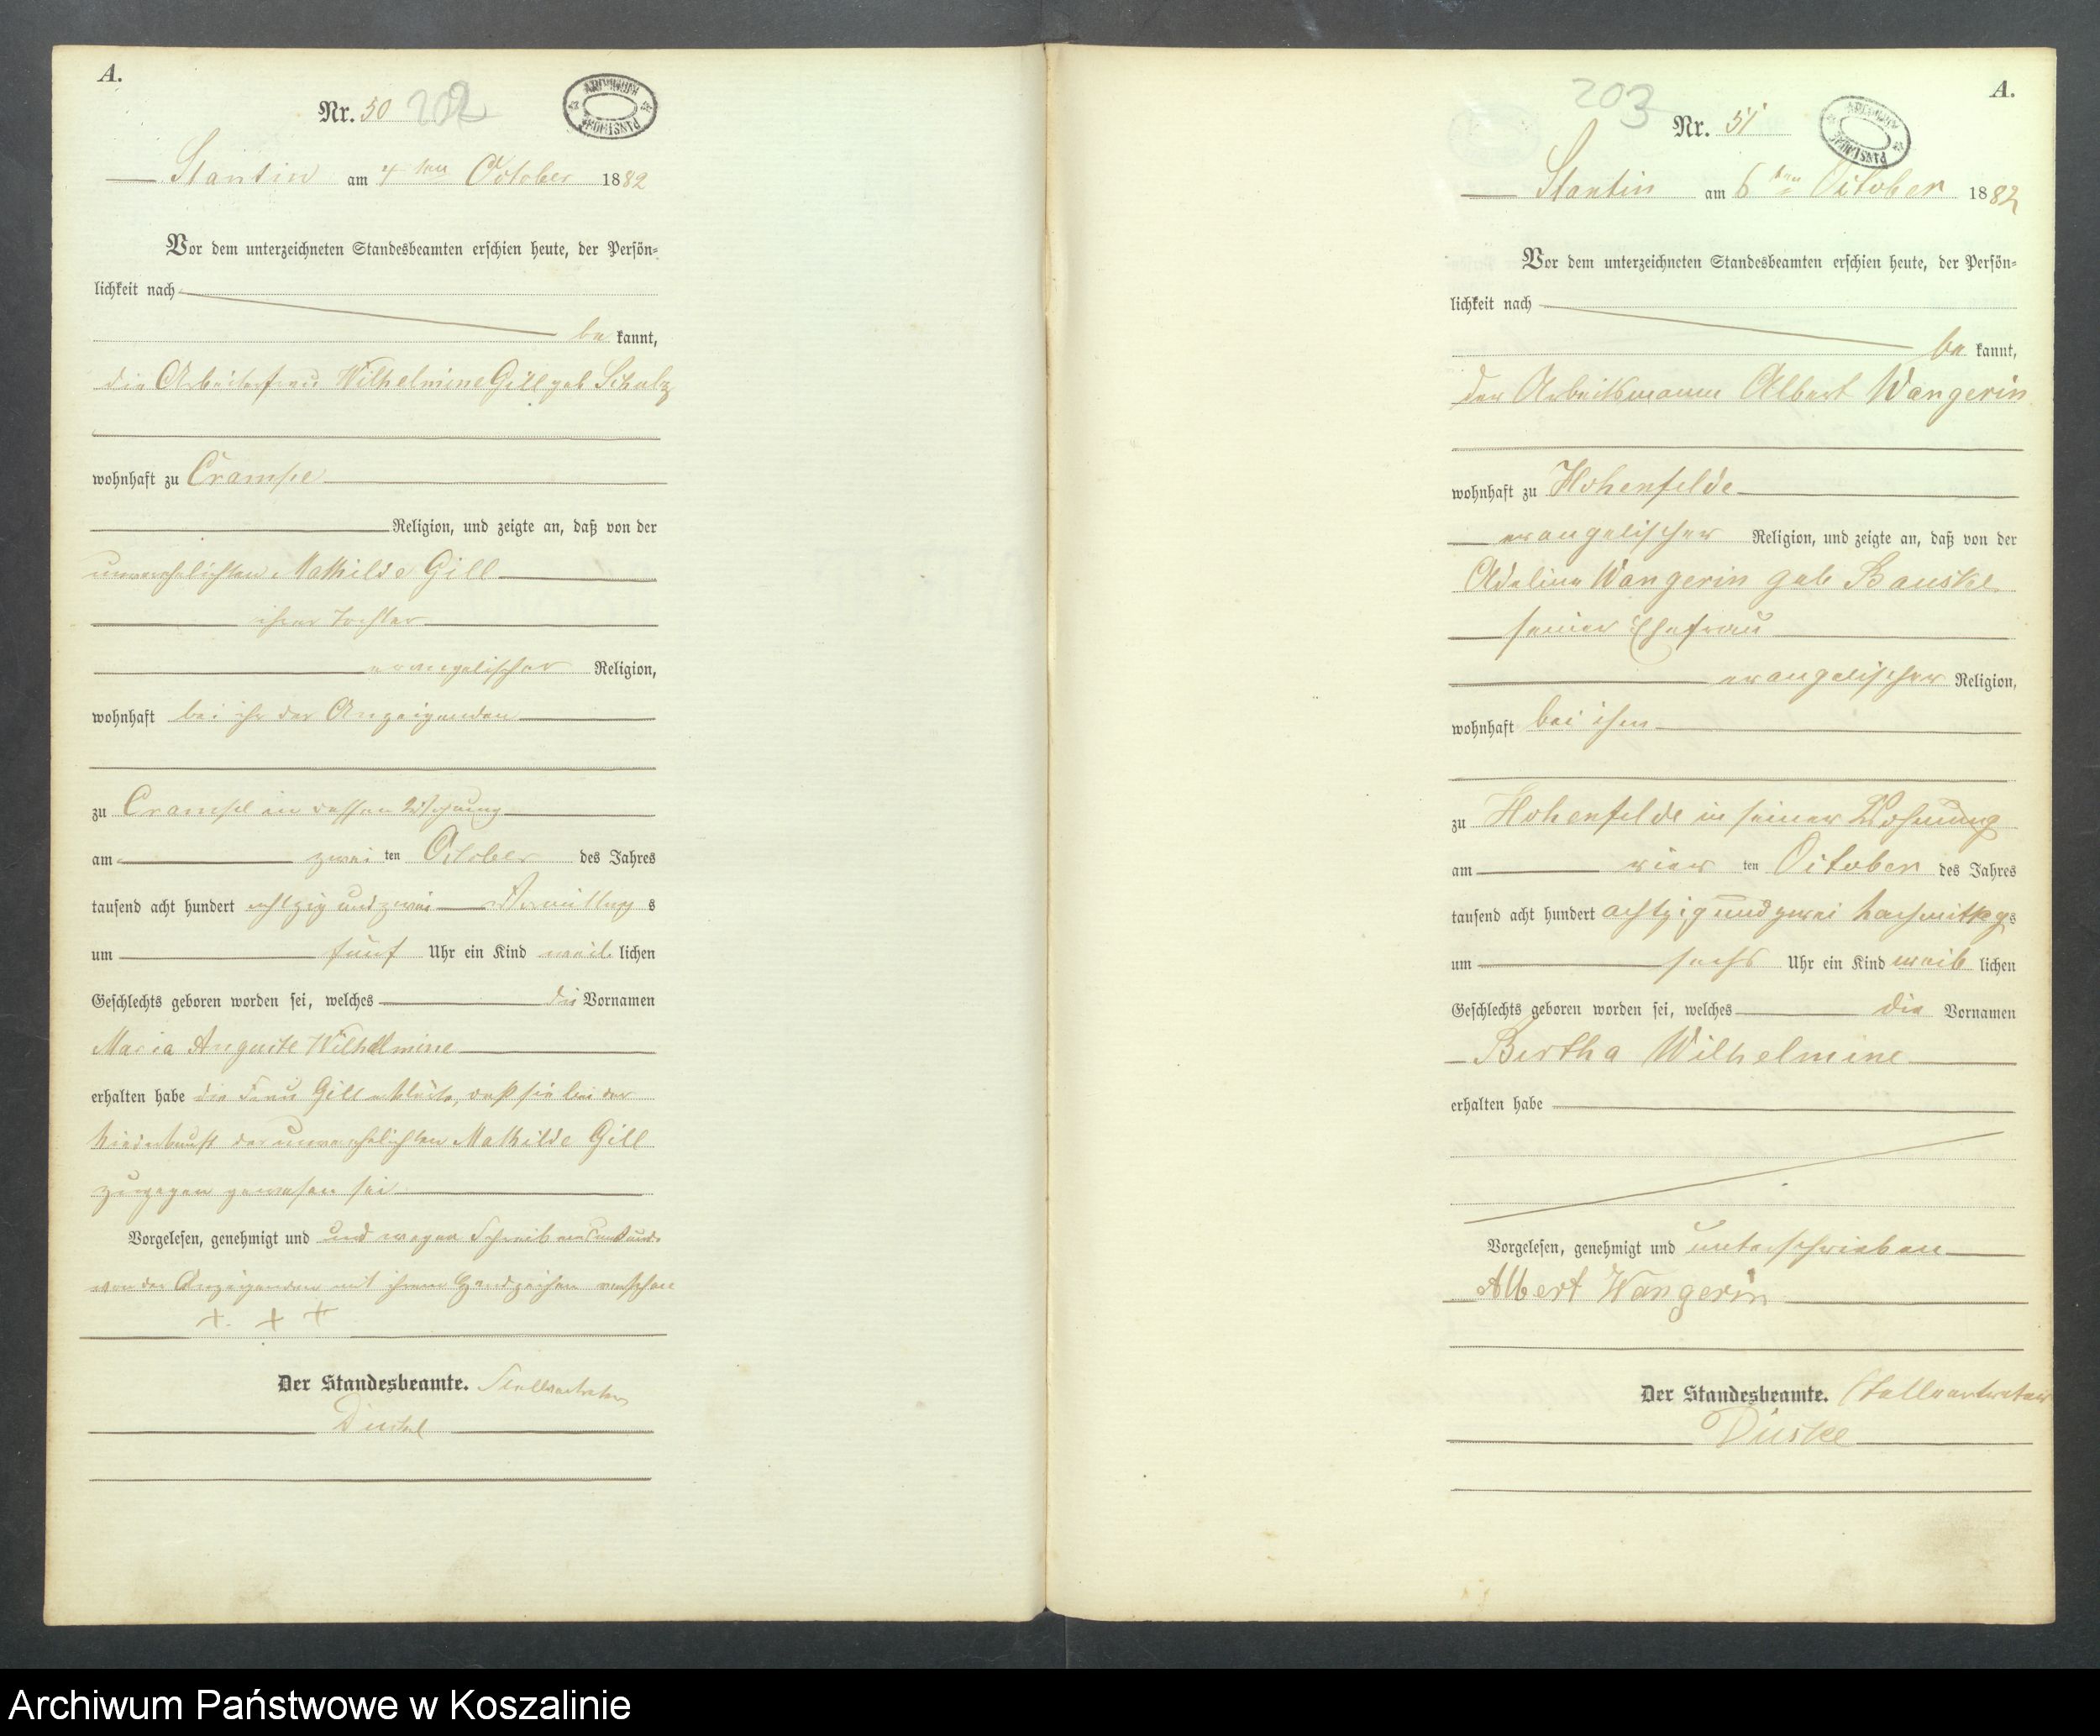 A.
Nr. 50 202
ARCHIWUM PAŃSTWOWE
Stantin am 4ten October 1882
Vor dem unterzeichneten Standesbeamten erschien heute, der Persön=
lichkeit nach
be kannt,
die Arbeiterfrau Wilhelmine Gill geb Schulz
wohnhaft zu Crampe
Religion, und zeigte an, daß von der
unverehelichten Mathilde Gill
ihrer Tochter
evangelischer Religion,
wohnhaft bei ihr der Anzeigenden
zu Crampe in dessen Wohnung
am zwei ten October des Jahres
tausend acht hundert achtzig und zwei Vormittag s
um fünf Uhr ein Kind weib lichen
Geschlechts geboren worden sei, welches die Vornamen
Maria Auguste Wilhelmine
erhalten habe die Frau Gill erklärte, daß sie bei der
Niederkunft der unverehelichten Mathilde Gill
zugegen gewesen sei
Vorgelesen, genehmigt und und wegen Schreibensunkunde
von der Anzeigenden mit ihrem Handzeichen versehen
+ + +
Der Standesbeamte. Stellvertreter
Duske
A.
203
Nr. 51
ARCHIWUM PAŃSTWOWE
Stantin am 6ten October 1882
Vor dem unterzeichneten Standesbeamten erschien heute, der Persön=
lichkeit nach
be kannt,
der Arbeitsmann Albert Wangerin
wohnhaft zu Hohenfelde
evangelischer Religion, und zeigte an, daß von der
Adeline Wangerin geb Bauske
seiner Ehefrau
evangelischer Religion,
wohnhaft bei ihm
zu Hohenfelde in seiner Wohnung
am vier ten October des Jahres
tausend acht hundert achtzig und zwei Nachmittag s
um sechs Uhr ein Kind weib lichen
Geschlechts geboren worden sei, welches die Vornamen
Bertha Wilhelmine
erhalten habe
Vorgelesen, genehmigt und unterschrieben
Albert Wangerin
Der Standesbeamte. Stellvertreter
Duske
Archiwum Państwowe w Koszalinie